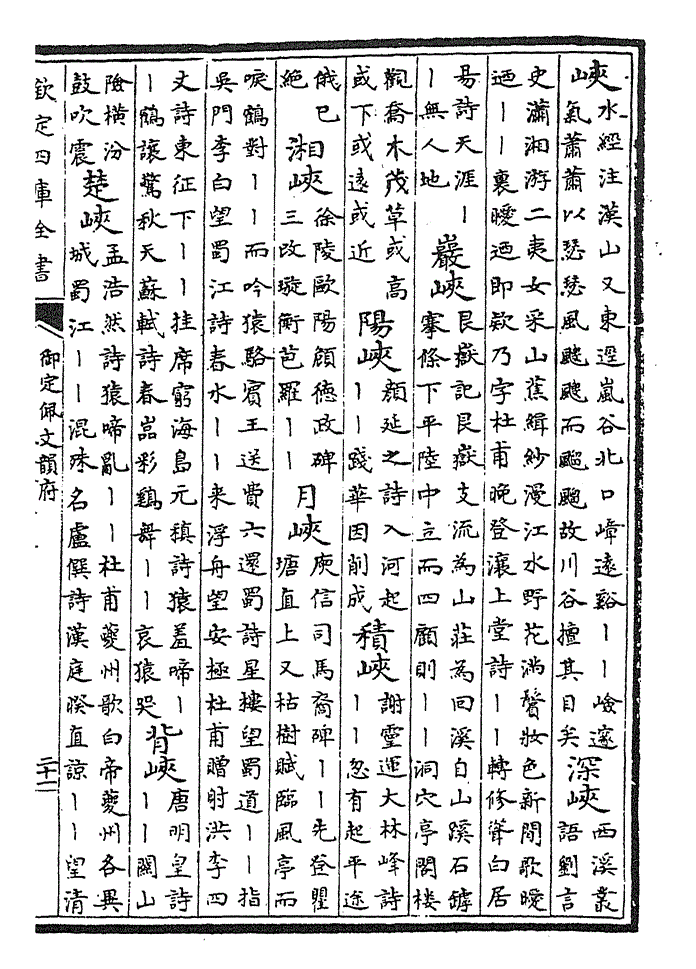 峽水經注漢山又東逕嵐谷北口嶂遠谿丨丨嶮邃
氣蕭蕭以瑟瑟風颼颼而飀飀故川谷擅其目矣
深峽西溪叢
語劉言
史瀟湘游二夷女采山蕉緝紗漫江水野花滿鬢妝色新閒歌曖
迺丨丨裏曖迺即欸乃字杜甫晚登瀼上堂詩丨丨轉修聳白居
易詩天涯丨
丨無人地
巖峽艮嶽記艮嶽支流為山莊為回溪自山蹊石罅
搴條下平陸中立而四顧則丨丨洞穴亭閣樓
觀喬木茂草或高
或下或遠或近
陽峽顔延之詩入河起
丨丨踐華因削成
積峽謝靈運大林峰詩
丨丨忽有起平途
俄已
絕
湘峽徐陵歐陽頠德政碑
三改璇衡苞羅丨丨
月峽庾信司馬裔碑丨丨先登瞿
塘直上又枯樹賦臨風亭而
唳鶴對丨丨而吟猿駱賓王送費六還蜀詩星樓望蜀道丨丨指
吳門李白望蜀江詩春水丨丨来浮舟望安極杜甫贈肘洪李四
丈詩東征下丨丨挂席窮海島元稹詩猿羞啼丨
丨鶴讓驚秋天蘇軾詩春嵓彩鷄舞丨丨哀猿哭
背峽唐明皇詩
丨丨關山
險橫汾
鼓吹震
楚峽孟浩然詩猿啼亂丨丨杜甫夔州歌白帝夔州各異
城蜀江丨丨混殊名盧僎詩漢庭暌直諒丨丨望清
欽定四庫全書
御定佩文韻府
二十二